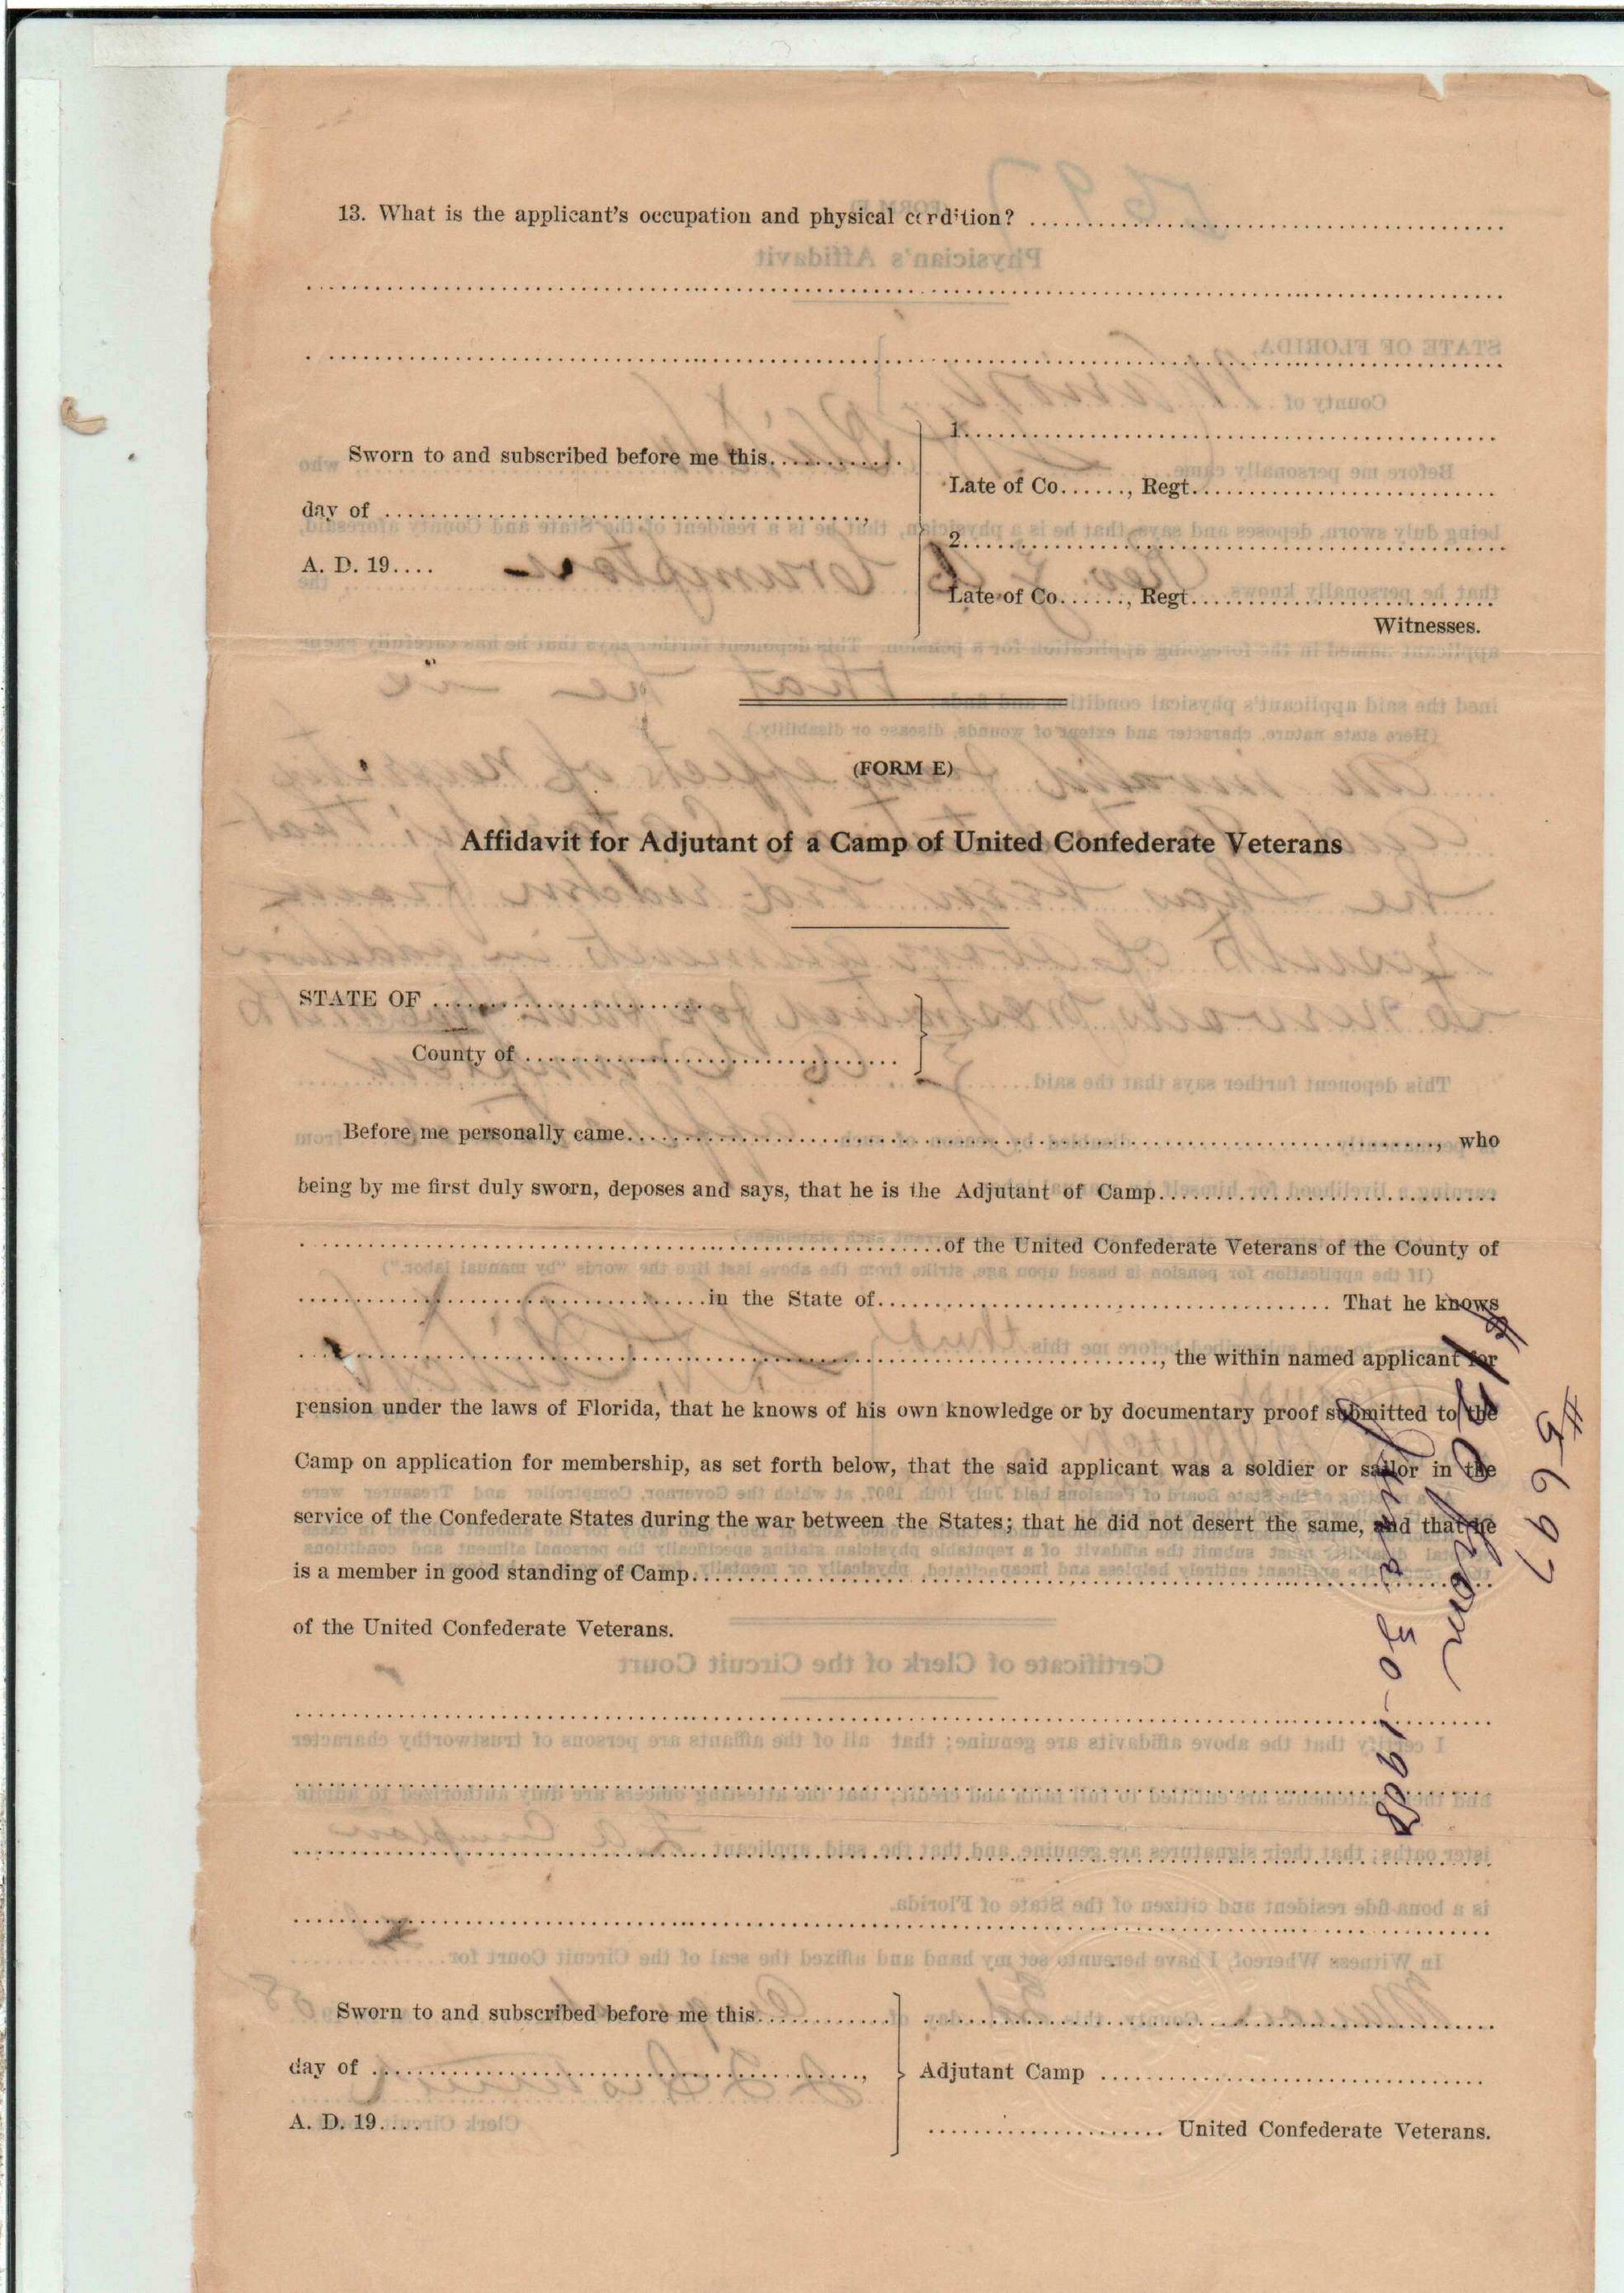 13. What is the applicant's occupation and physical condition? ........................................
................................................................................
................................................................................
Sworn to and subscribed before me this............
day of ........................................,
A. D. 19....
1........................................
Late of Co......, Regt.........................
2........................................
Late of Co......, Regt.........................
Witnesses.
(FORM E)
Affidavit for Adjutant of a Camp of United Confederate Veterans
STATE OF ........................
County of ................................
Before me personally came........................................................................, who
being by me first duly sworn, deposes and says, that he is the Adjutant of Camp............................
......................................................of the United Confederate Veterans of the County of
...................................in the State of...................................... That he knows
........................................................................, the within named applicant for
pension under the laws of Florida, that he knows of his own knowledge or by documentary proof submitted to the
Camp on application for membership, as set forth below, that the said applicant was a soldier or sailor in the
service of the Confederate States during the war between the States; that he did not desert the same, and that he
is a member in good standing of Camp................................................................
of the United Confederate Veterans.
................................................................................
................................................................................
................................................................................
................................................................................
Sworn to and subscribed before me this............
day of ........................................,
A. D. 19....
................................................
Adjutant Camp ................................
.................... United Confederate Veterans.
#5697
30-1908